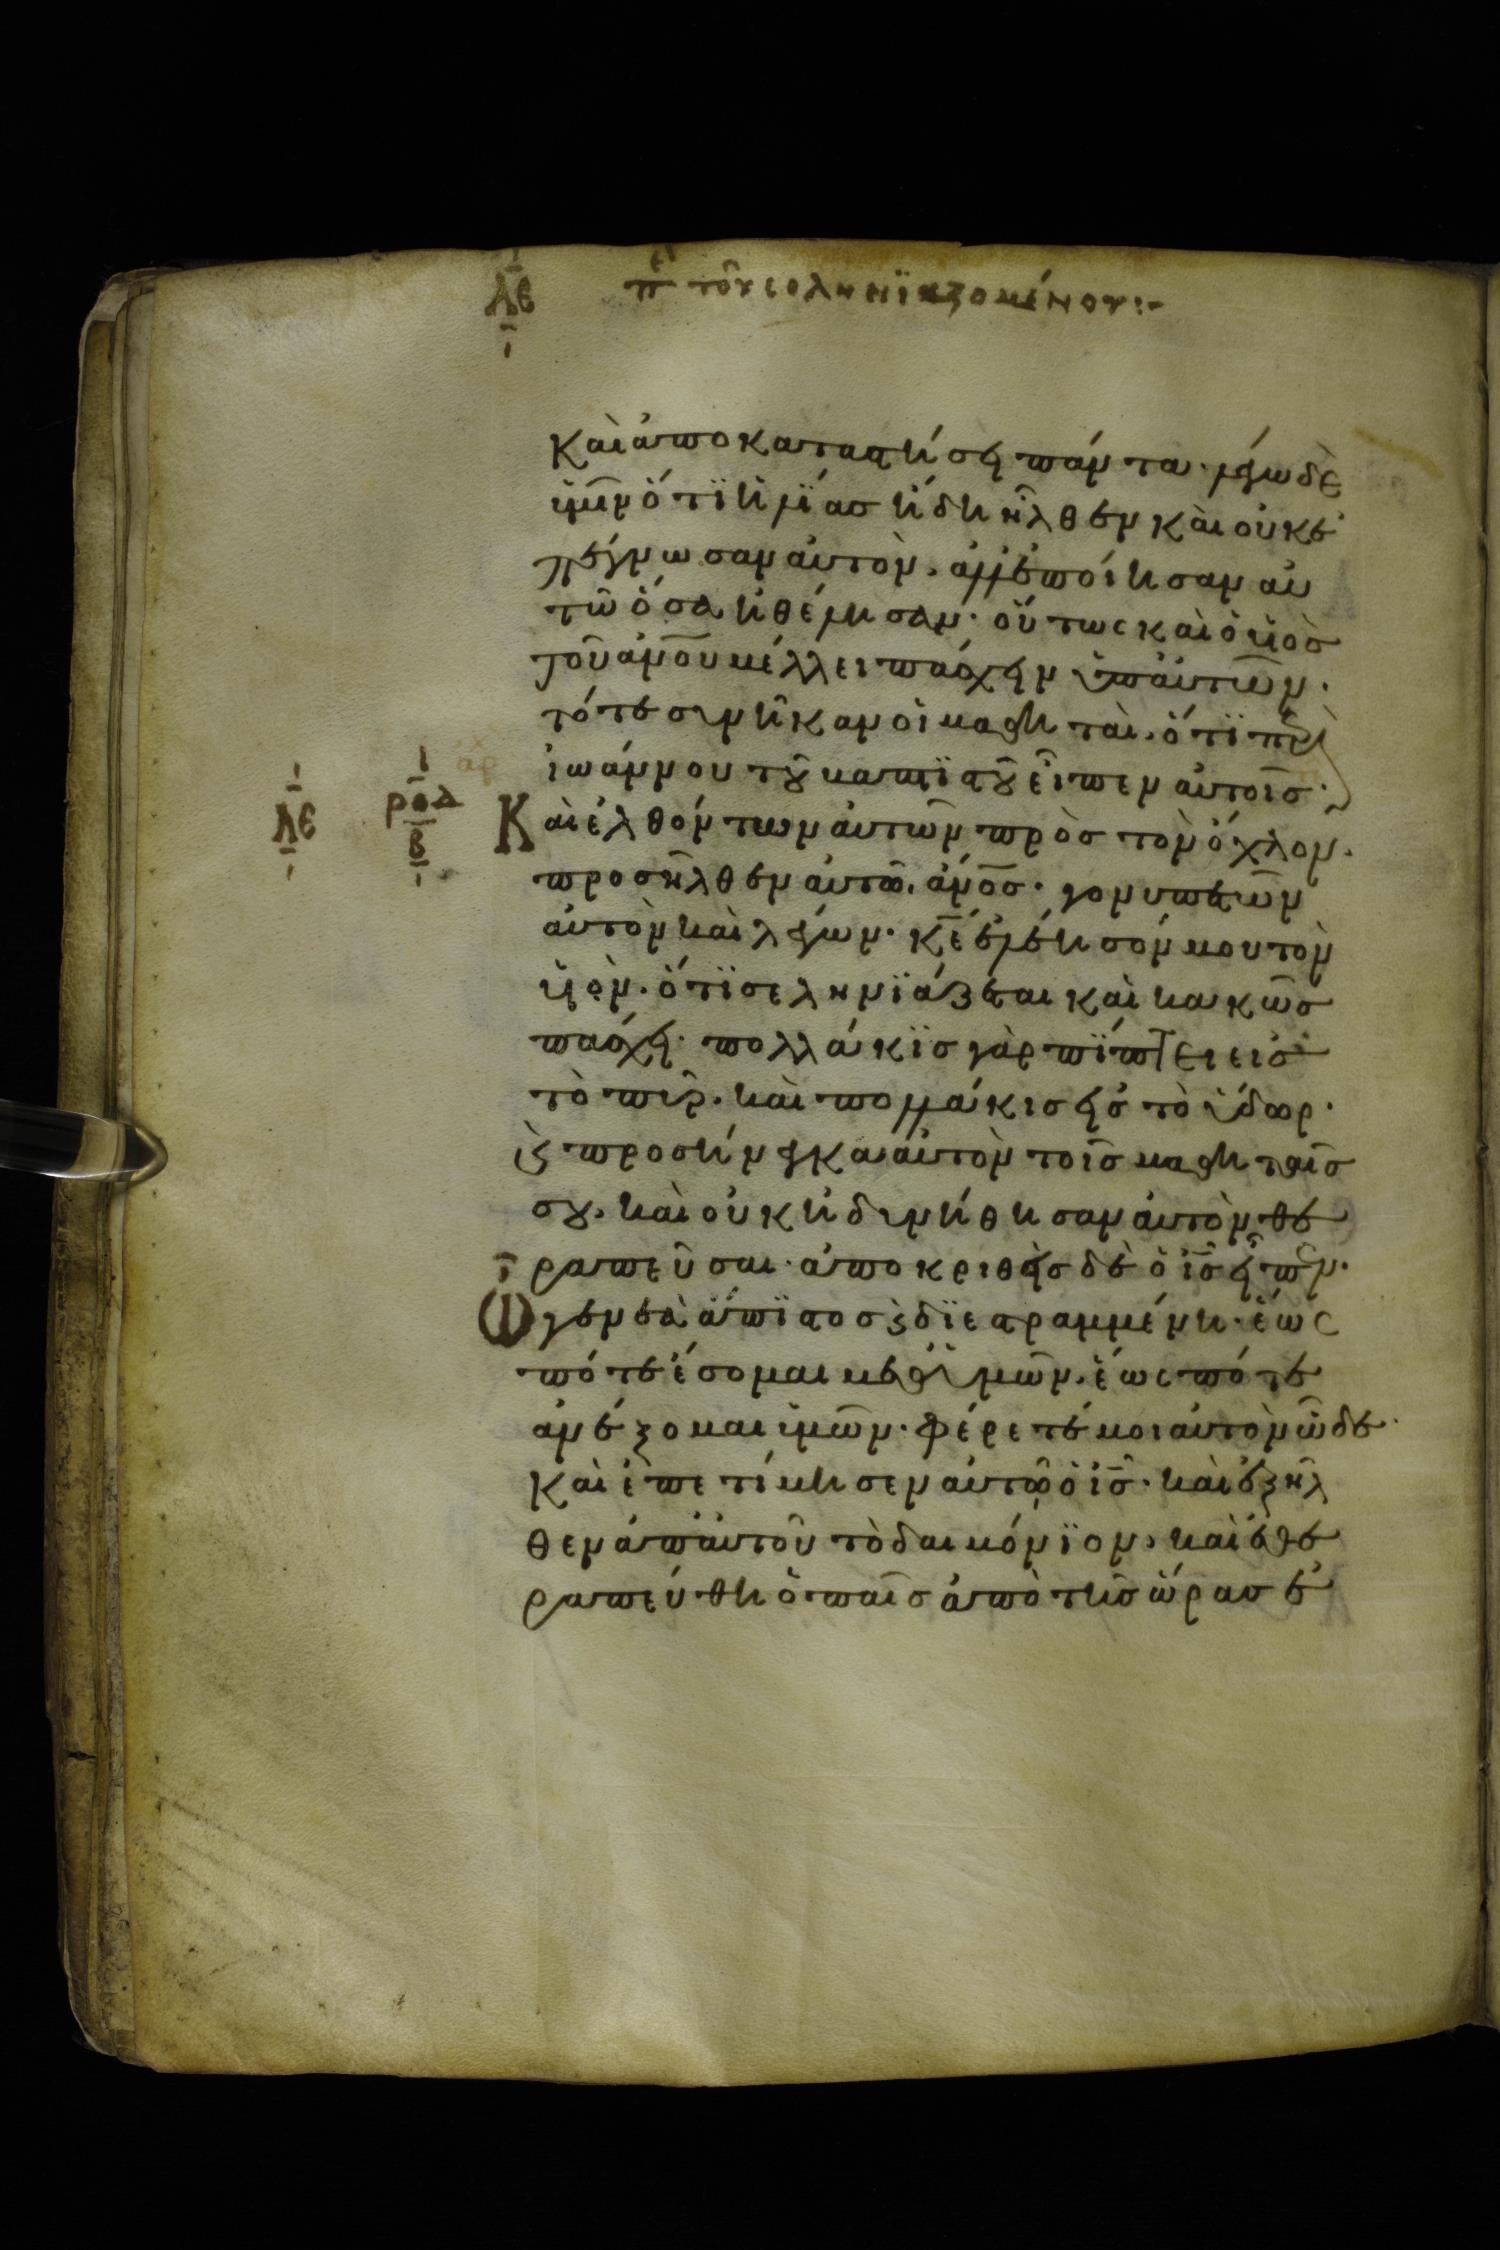 ΛΕ πε τοῦ σεληνϊαζομένου:-
Καὶ ἀποκαταστήσει πάντα· λέγω δὲ
ὑμῖν ὅτϊ ἠλίασ ἤδη ἦλθεν καὶ οὐκ ἐ
πέγνωσαν αὐτὸν. ἀλλ' ἐποίησαν αὐ
τῶ ὅσα ἠθέλησαν· οὕτως καὶ ὁ υἱὸσ
τοῦ ἀνου μέλλει πάσχειν ὑπ' αὐτῶν·
τότε συνῆκαν οἱ μαθηταὶ. ὅτϊ περὶ
ἰωάννου τοῦ βαπτϊστοῦ εἶπεν αὐτοῖσ·
ΛΕ ροδ Β αρχ Καὶ ἐλθόντων αὐτῶν πρὸσ τὸν ὄχλον.
προσῆλθεν αὐτῶ. ἀνοσ· γονυπετῶν
αὐτὸν καὶ λέγων· κε ἐλέησόν μου τὸν
υἱὸν· ὅτϊ σεληνϊάζεται καὶ κακῶσ
πάσχει· πολλάκϊσ γὰρ πϊπτει εἰσ
τὸ πῦρ. καὶ πολλάκισ εἰσ τὸ ὕδωρ·
κ προσήνεγκα αὐτὸν τοῖσ μαθηταῖσ
σου. καὶ οὐκ ἠδυνήθησαν αὐτὸν θε
ραπεῦσαι· ἀποκριθεὶσ δὲ ὁ ισ εἶπεν·
Ὦ γενεὰ ἄπϊστοσ κ δϊεστραμμένη· ἕως
πότε ἔσομαι μεθ' ὑμῶν. ἕως πότε
ἀνέξομαι ὑμῶν· φέρετέ μοι αὐτὸν ὧδε·
Καὶ ἐπετίμησεν αὐτῶ ὁ ισ· καὶ ἐξῆλ
θεν ἀπ' αὐτοῦ τὸ δαιμόνϊον. καὶ ἐθε
ραπεύθη ὁ παῖσ ἀπὸ τῆσ ὥρασ ἐ